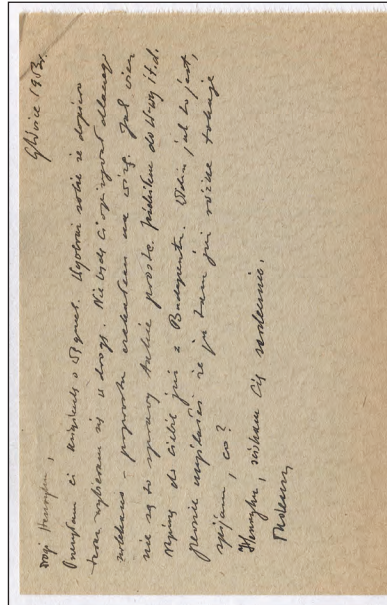 Gliwice 1963.
Drogi Henryku,
Przesyłam ci książkę o Wyobraź sobie że dopiero
teraz wybieram się w drogę. Nie będę Ci opisywał dlaczego
zwlekano - po prostu czekałem na wizę. Jak wiesz
nie są to sprawy takie proste. Jeździłem do W-wy i t.d.
Napiszę do Ciebie już z Budapesztu. Wiem jak to jest,
pewnie myślałeś że ja tam już różne tokaje
spijam, co?
Henryku, ściskam Cię serdecznie,
Tadeusz